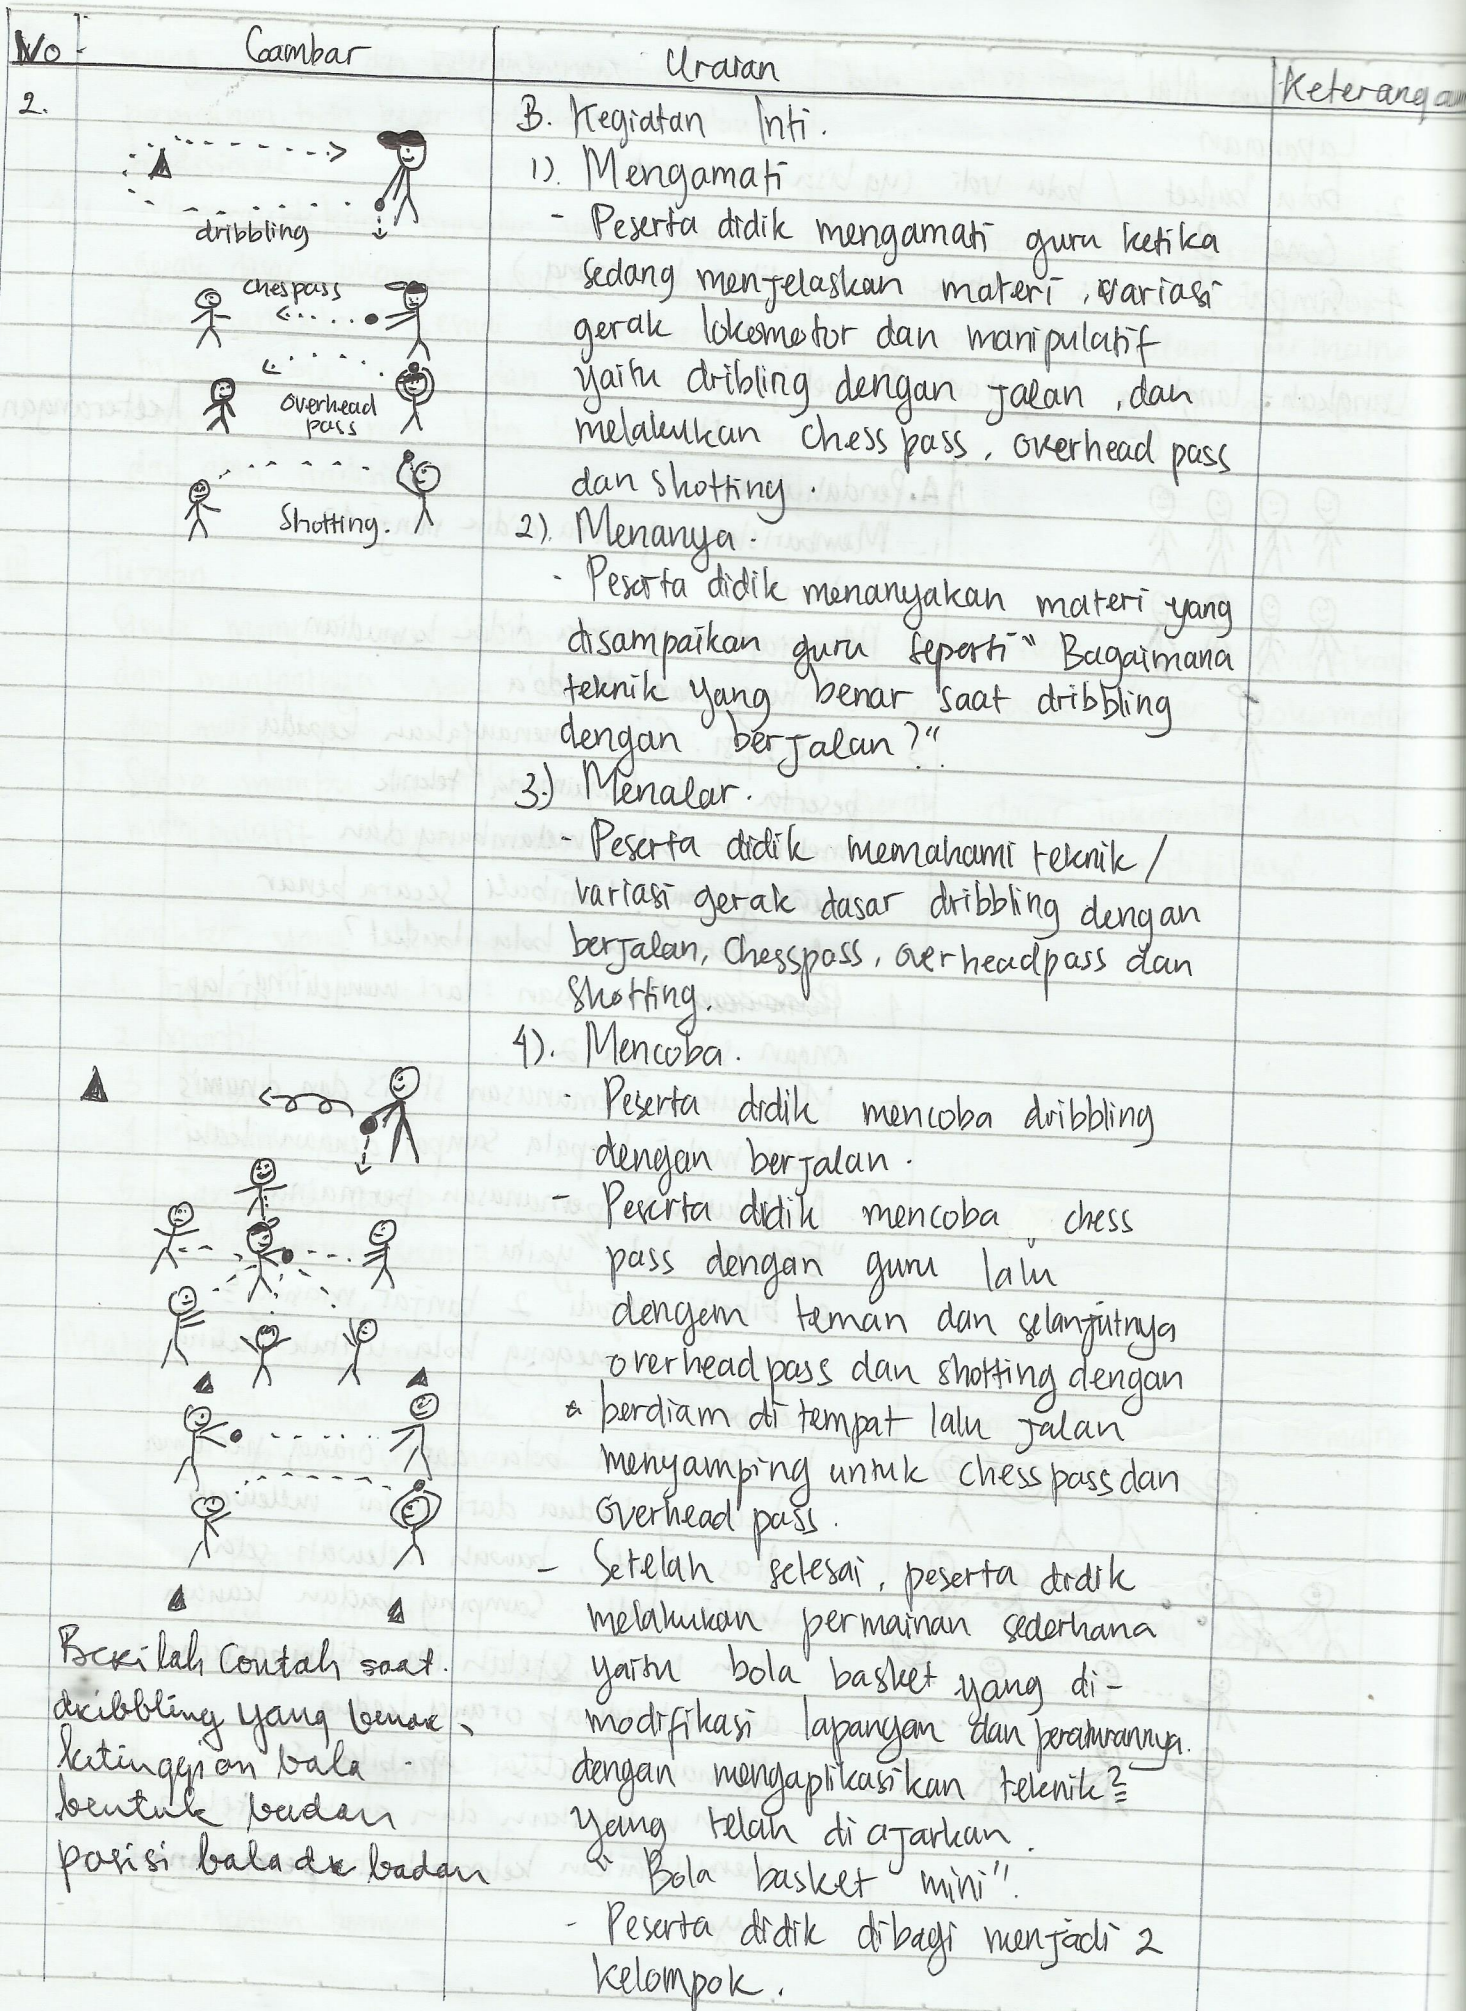 No Gambar Uraian Keterangan
2.
dribbling
chespass
overhead
pass
Shotting.
B. Kegiatan Inti.
1). Mengamati
- Peserta didik mengamati guru ketika
sedang menjelaskan materi, variasi
gerak lokomotor dan manipulatif
yaitu dribling dengan jalan, dan
melakukan chess pass, overhead pass
dan shotting.
2). Menanya.
- Peserta didik menanyakan materi yang
disampaikan guru seperti "Bagaimana
teknik yang benar saat dribbling
dengan berjalan?"
3.) Menalar.
- Peserta didik memahami teknik/
variasi gerak dasar dribbling dengan
berjalan, Chesspass, overheadpass dan
Shotting.
4). Mencoba.
- Peserta didik mencoba dribbling
dengan berjalan.
- Peserta didik mencoba chess
pass dengan guru lalu
dengem teman dan selanjutnya
overheadpass dan shotting dengan
berdiam di tempat lalu jalan
menyamping untuk chess pass dan
overhead pass.
- Setelah selesai, peserta didik
melakukan permainan sederhana
yaitu bola basket yang di-
modifikasi lapangan dan peraturannya.
dengan mengaplikasikan teknik2
yang telah diajarkan.
"Bola basket mini".
- Peserta didik dibagi menjadi 2
kelompok.
Berilah Contah saat
dribbling yang benar,
ketinggian bala
bentuk badan
posisi bala dr badan